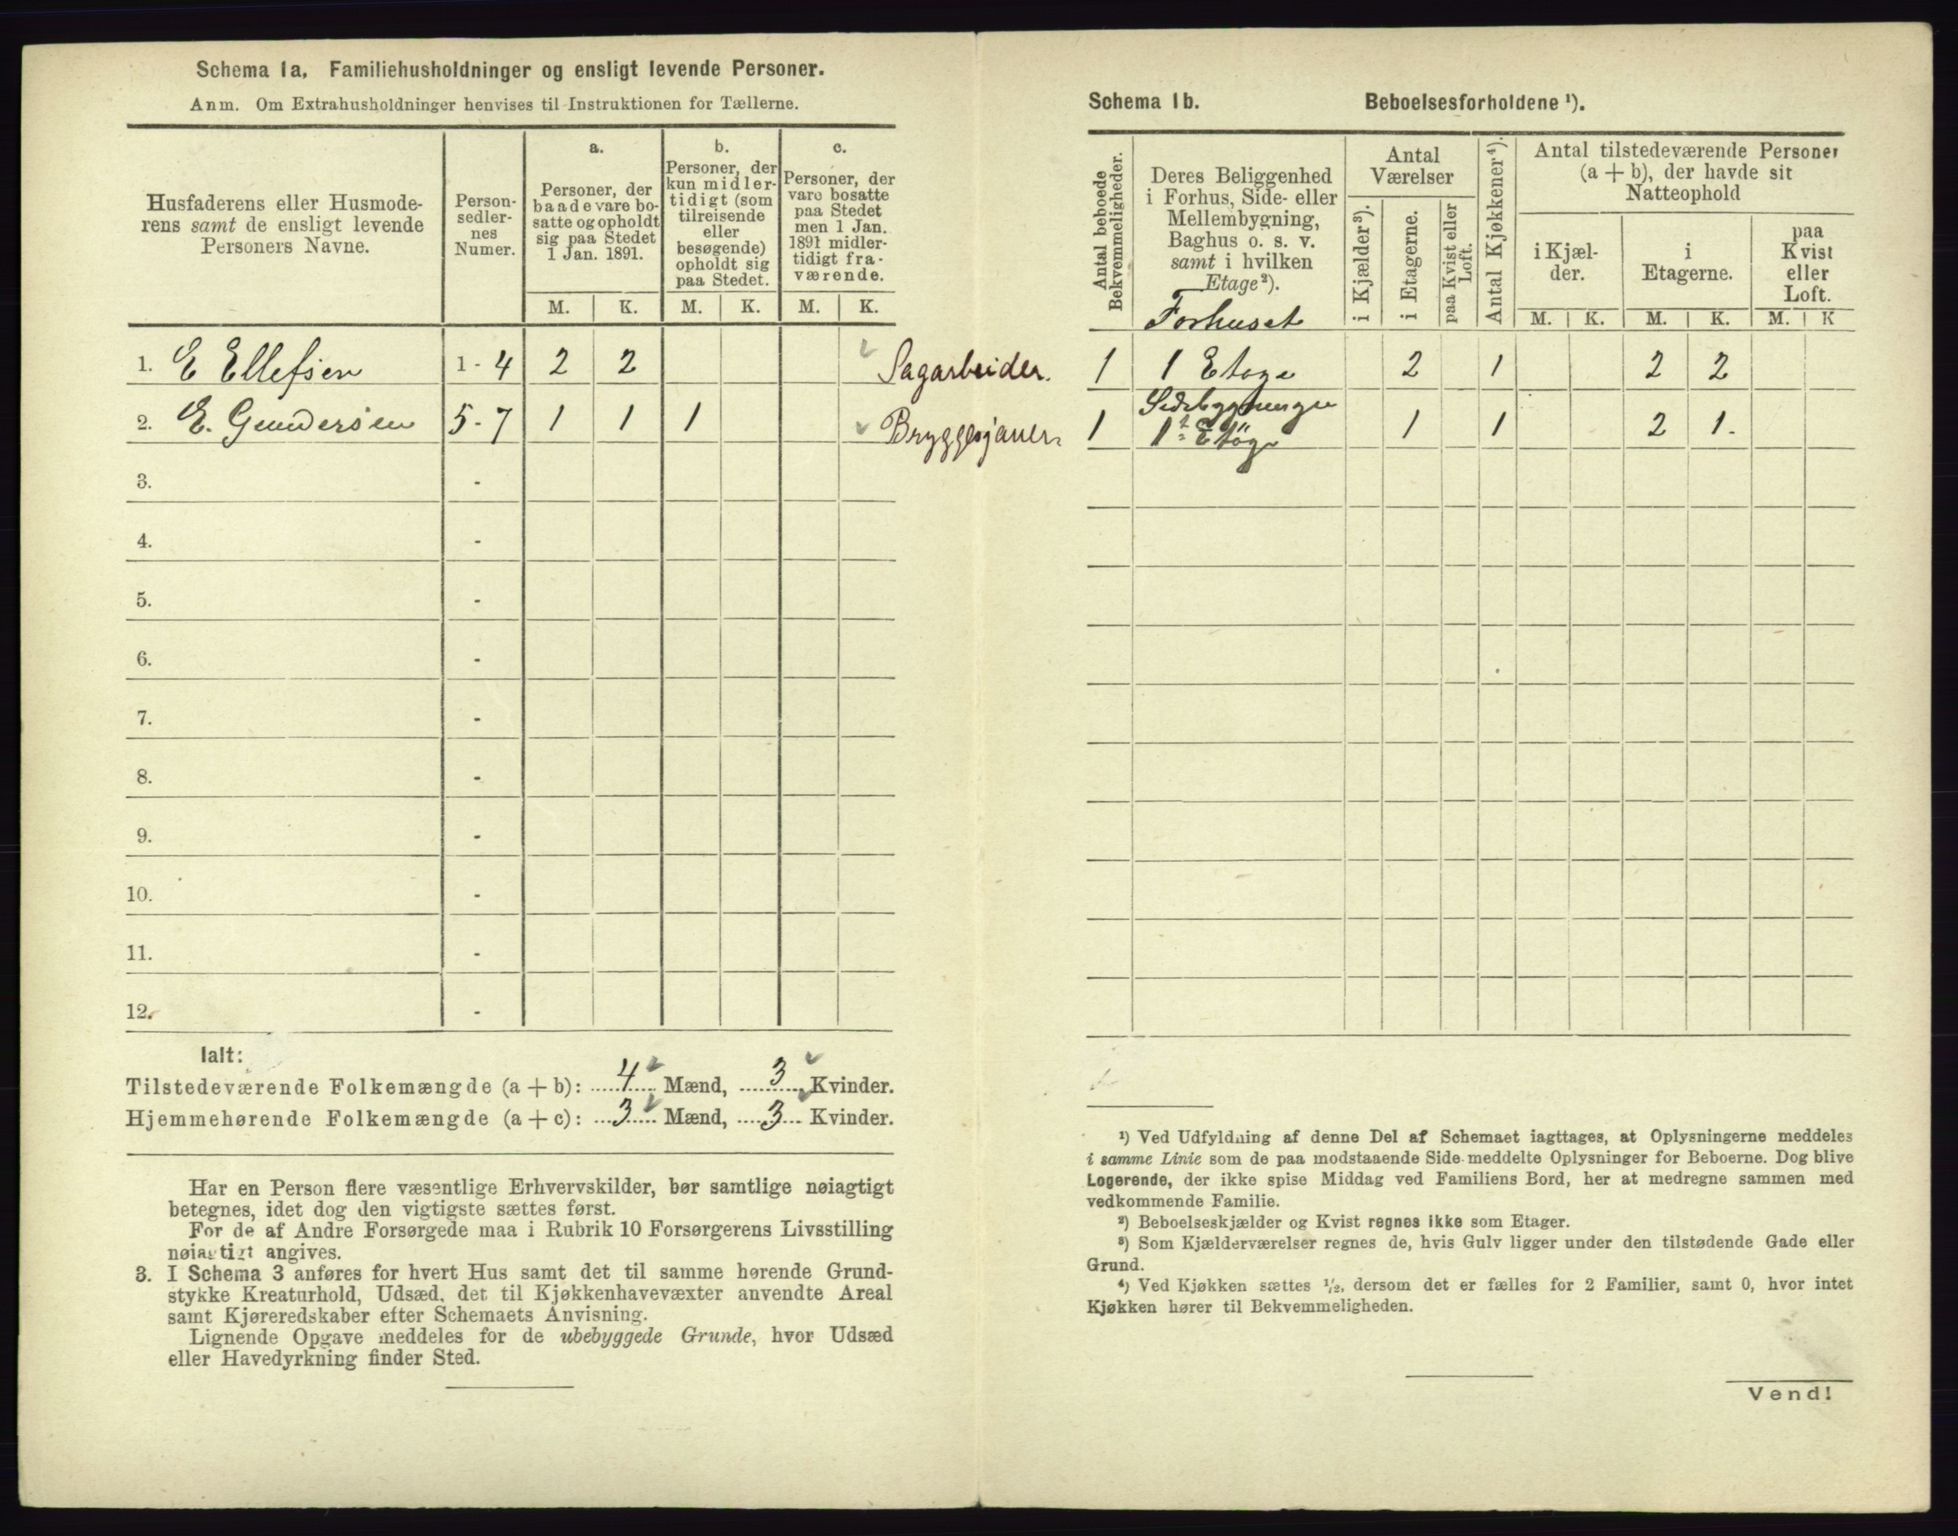 Schema 1a. Familiehusholdninger og ensligt levende Personer.
Anm. Om Extrahusholdninger henvises til Instruktionen for Tællerne.
Husfaderens eller Husmoderens samt de ensligt levende Personers Navne.
Person-sedlernes Numer.
a.
Personer, der baade vare bosatte og opholdt sig paa Stedet 1 Jan. 1891.
b.
Personer, der kun midlertidigt (som tilreisende eller besøgende) opholdt sig paa Stedet.
c.
Personer, der vare bosatte paa Stedet men 1 Jan. 1891 midlertidigt fraværende.
M. K. M. K. M. K.
1. E Ellefsen 1-4 2 2 Sagarbeider.
2. E. Gundersen 5-7 1 1 1 Bryggesjauer
3. -
4. -
5. -
6. -
7. -
8. -
9. -
10. -
11. -
12. -
Ialt:
Tilstedeværende Folkemængde (a + b): 4 Mænd, 3 Kvinder.
Hjemmehørende Folkemængde (a + c): 3 Mænd, 3 Kvinder.
Har en Person flere væsentlige Erhvervskilder, bør samtlige nøiagtigt
betegnes, idet dog den vigtigste sættes først.
For de af Andre Forsørgede maa i Rubrik 10 Forsørgerens Livsstilling
nøiagtigt angives.
3. I Schema 3 anføres for hvert Hus samt det til samme hørende Grund-
stykke Kreaturhold, Udsæd, det til Kjøkkenhavevæxter anvendte Areal
samt Kjøreredskaber efter Schemaets Anvisning.
Lignende Opgave meddeles for de ubebyggede Grunde, hvor Udsæd
eller Havedyrkning finder Sted.
Schema 1b. Beboelsesforholdene ¹).
Antal beboede Bekvemmeligheder.
Deres Beliggenhed i Forhus, Side- eller Mellembygning, Baghus o. s. v. samt i hvilken Etage ²).
Antal Værelser
i Kjælder ³).
i Etagerne.
paa Kvist eller Loft.
Antal Kjøkkener ⁴).
Antal tilstedeværende Personer (a + b), der havde sit Natteophold
i Kjælder.
i Etagerne.
paa Kvist eller Loft.
M. K. M. K. M. K
Forhuset
1 1 Etage 2 1 2 2
Sidebygningen
1 1ste Etage 1 1 2 1.
¹) Ved Udfyldning af denne Del af Schemaet iagttages, at Oplysningerne meddeles
i samme Linie som de paa modstaaende Side meddelte Oplysninger for Beboerne. Dog blive
Logerende, der ikke spise Middag ved Familiens Bord, her at medregne sammen med
vedkommende Familie.
²) Beboelseskjælder og Kvist regnes ikke som Etager.
³) Som Kjælderværelser regnes de, hvis Gulv ligger under den tilstødende Gade eller
Grund.
⁴) Ved Kjøkken sættes ½, dersom det er fælles for 2 Familier, samt 0, hvor intet
Kjøkken hører til Bekvemmeligheden.
Vend!